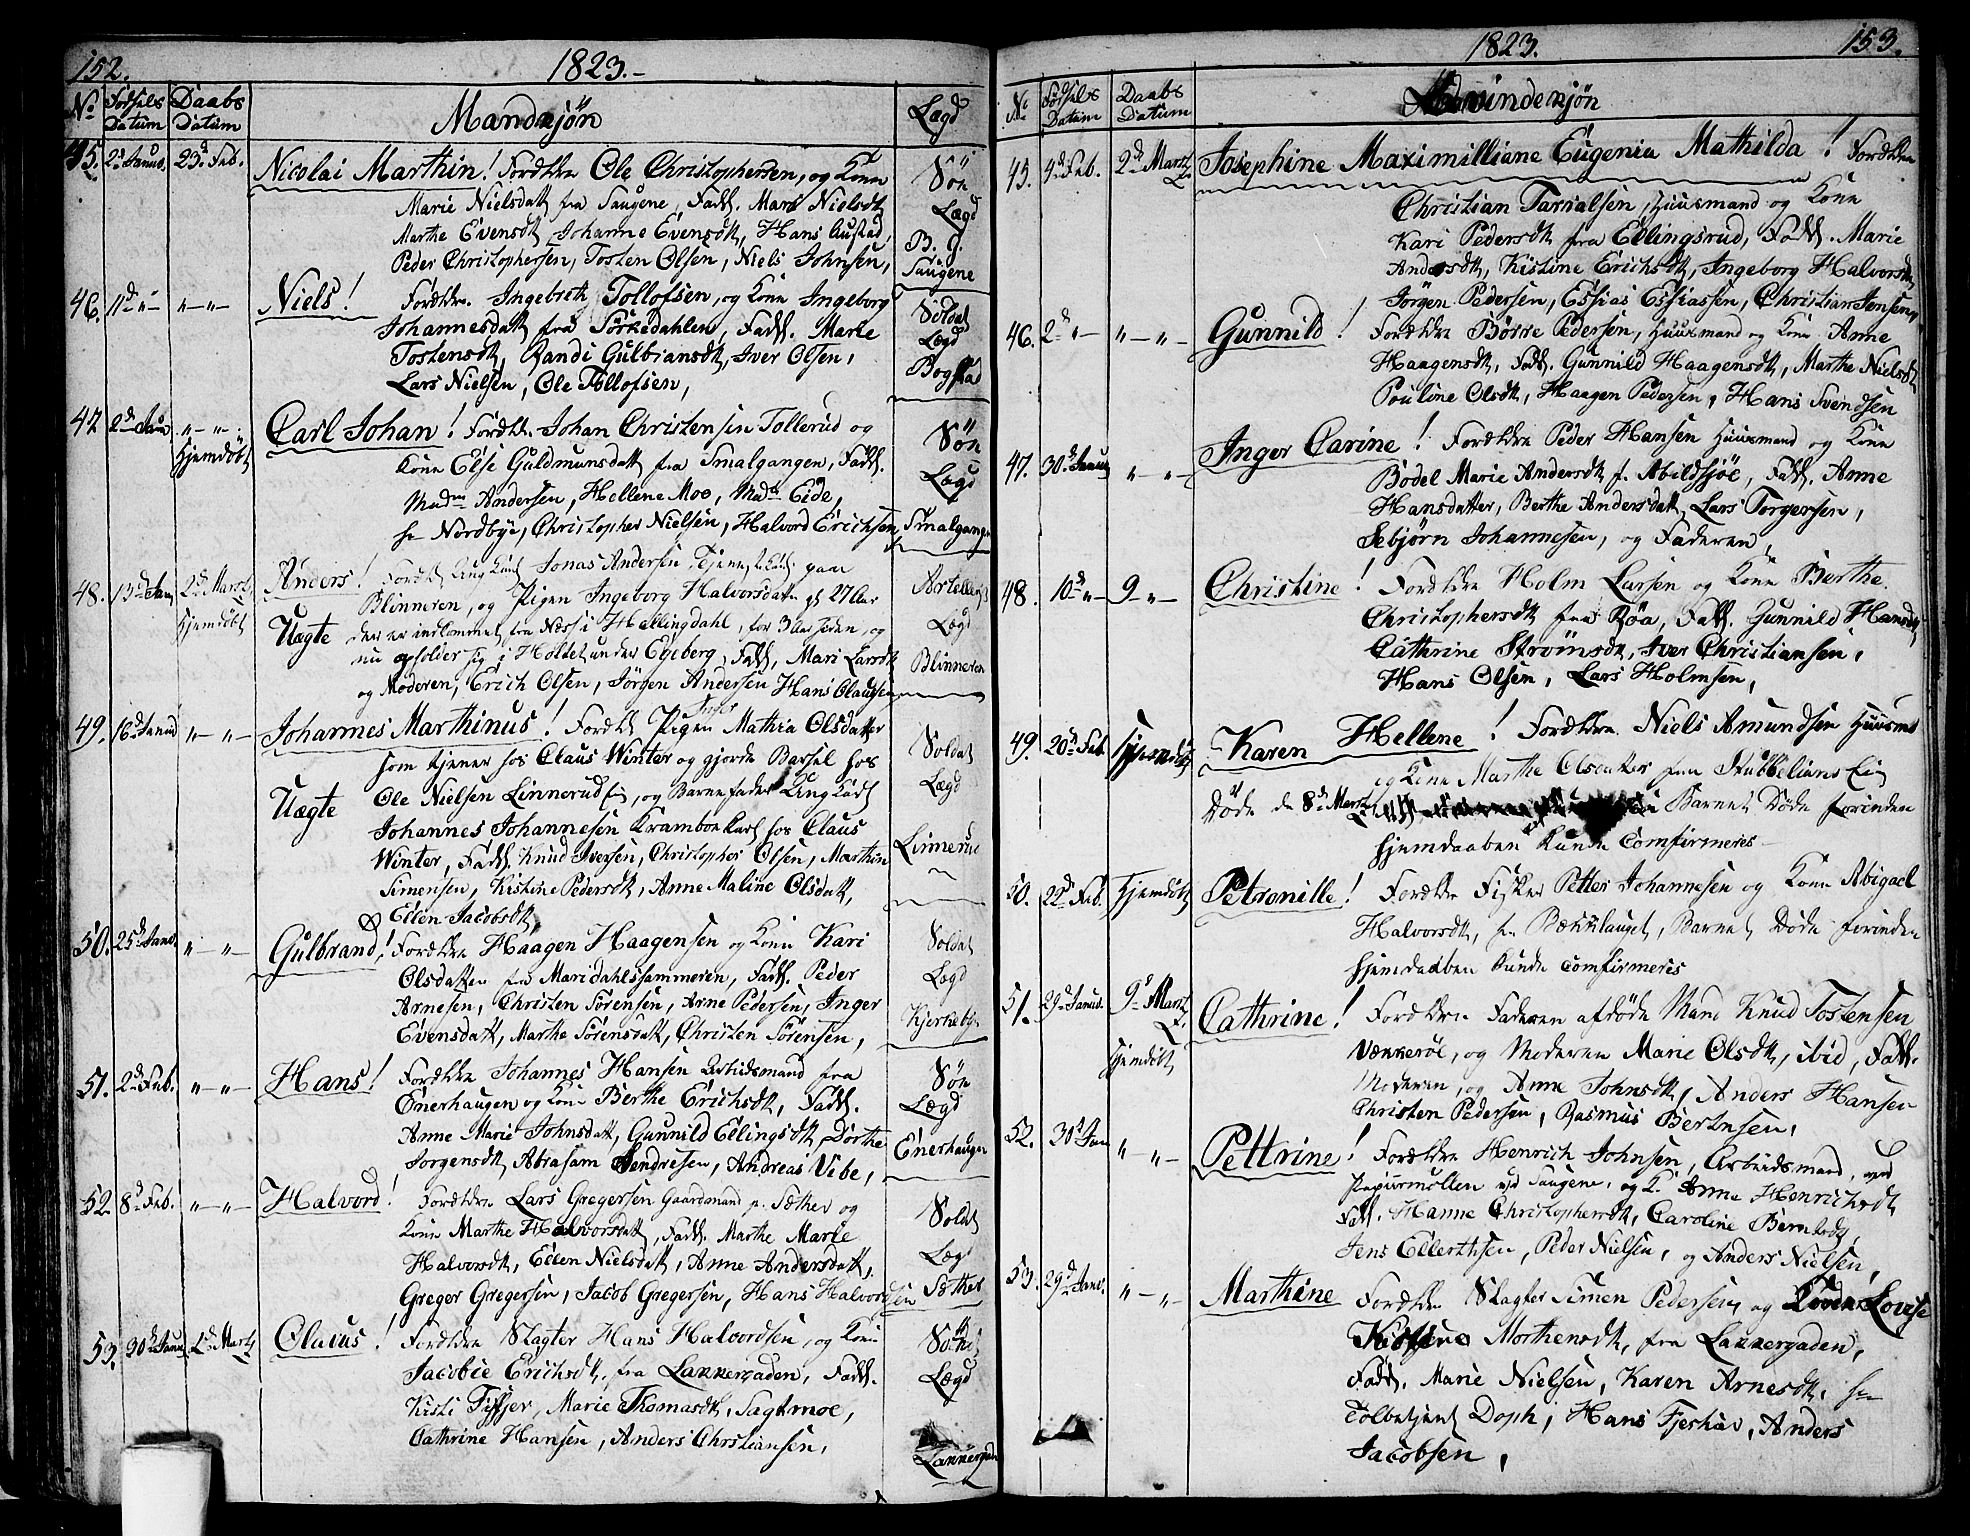 152.
1823.
No Fødsels Datum Daabs Datum Mandkjön Lægd
45. 23d Feb. Nicolai Marthin! Forældre Ole Christophersen, og Kone
Marie Nielsdatt fra Saugene, Fadd. Mari Nielsdt
Marthe Evensdt Johanne Evensdt, Hans Austad,
Peder Christophersen, Tosten Olsen, Niels Johnsen,
Søe Lægd B. g. Saugene
46. 11d "- "-"- Niels! Forældre. Ingebreth Tollofsen, og Kone Ingeborg
Johannesdatt fra Sörkedahlen, Fadd. Marie
Tostensdt, Randi Gulbransdt, Iver Olsen,
Lars Nielsen, Ole Tollofsen,
Soldat Lægd Bogstad
47 2d Janu "-"- Hjemdöbt Carl Johan! Forældre Johan Christensen Tollerud og
Kone Else Guldmunsdatt fra Smalgangen, Fadd.
Madm Andersen, Hellene Moe, Madm Eide,
Hr Nordbye, Christopher Nielsen, Halvord Erichsen
Söe Lægd Smalgangen
48. 13d Janu 2d Martz Hjemdöbt Anders! Uægte Forældre Ung Karl Jonas Andersen Tjenestekarl paa
Blinneren, og Pigen Ingeborg Halvorsdatt 27 Aar
der er indkommet fra Næss i Hallingdahl, for 3 Aar siden, og
nu opholder sig i Holtet under Egeberg, Fadd, Mari Larsdt
og Moderen, Erich Olsen, Jörgen Andersen Hans Olaussen
Lægd Blinneren
49. 16d Janu "-"- Johannes Marthinus! Uægte Pigen Mathia Olsdatter
som tjener hos Claus Winter og gjorde Barsel hos
Ole Nielsen Linnerud Eie, og Barnefader Ung Karl
Johannes Johannesen Kramboe Karl hos Claus
Winter, Fadd. Knud Iversen, Christopher Olsen, Marthin
Simensen, Kistine Pedersdt, Anne Maline Olsdatt,
Ellen Jacobsdt,
Soldat Lægd Linnerud
50. 25d Janu. "-"- Gulbrand! Forældre Haagen Haagensen og Kone Kari
Olsdatter fra Maridahlshammeren, Fadd. Peder
Arnesen, Christen Sörensen, Arne Pedersen, Inger
Evensdatt, Marthe Sörensdatt, Christen Sörensen,
Soldat Lægd Kjerkebye
51. 2d Feb. "-"- Hans! Forældre Johannes Hansen Arbeidsmand fra
Enerhaugen og Kone Berthe Erichsdt, Fadd.
Anne Marie Johnsdatt, Gunnild Ellingsdt, Dorthe
Jorgensdt, Abraham Hendresen, Andreas Vibe,
Söe Lægd Enerhaugen
52. 8d Feb. "-"- Halvord! Forældre Lars Gregersen Gaardmand p. Sæther og
Kone Marthe Halvorsdatt, Fadd. Marthe Marie
Halvorsdt, Ellen Nielsdatt, Anne Andersdatt,
Gregor Gregersen, Jacob Gregersen, Hans Halvorsen
Soldt Lægd Sæther
53. 30d Janu. 2d Martz Olaus! Forældre Slagter Hans Halvordsen, og Kone
Jacobie Erichsdt. fra Lakkergaden, Fadd.
Kisti Fissjer, Marie Thomasdt, Sagtmoe,
Cathrine Hansen, Anders Chrstiansen,
Lægd Lakkergaden
1823.
153.
No Fødsels Datum Daabs Datum Qvindekjön
45. 4d Feb. 2d Martz Josephine Maximilliane Eugenia Mathilda! Forældre
Christian Tarralsen, Huusmand og Kone
Kari Pedersdt fra Ellingsrud, Fadd. Marie
Andersdt, Kistine Erichsdt, Ingeborg Halvorsdt,
Jörgen Pedersen, Essias Essiassen, Christian Jensen,
46. 2d "- "-"- Gunnild! Forældre Börre Pedersen, Huusmand og Kone Anne
Haagensdt, Fadd. Gunnild Haagensdt, Marthe Nielsdt
Pouline Olsdt, Haagen Pedersen, Hans Svendsen
47. 30d Janu "-"- Inger Carine! Forældre Peder Hansen Huusmand og Kone
Bodel Marie Andersdt f. Abildsjöe, Fadd. Anne
Hansdatter, Berthe Andersdatt, Lars Torgersen,
Sebjörn Johannesen, og Faderen,
48. 10d "- 9 "- Christine! Forældre Holm Larsen og Kone Berthe
Christophersdt fra Röa, Fadd. Gunnild Hansdt,
Cathrine Strömsdt, Iver Christiansen,
Hans Olsen, Lars Holmsen,
49. 20d Feb. Hjemdöbt Karen Hellene! Forældre Niels Amundsen Huusmd
og Kone Marthe Olsdatter fra Hubbelians Eie
Döde d 8d Martz Barnet Döde forinden
Hjemdaaben Kunde Comfirmeres
50. 22d Feb. Hjemdöbt Petronille! Forældre Fisker Petter Johannesen og Kone Abigael
Halvorsdt, fr Bækkelauget, Barnet Döde forinden
Hjemdaaben Kunde Comfirmeres
51. 29d Janu. 9d Martz Hjemdöbt Cathrine! Forældre. Faderen afdöde Mand Knud Tostensen
Vækkeröe, og Moderen Marie Olsdt, ibid, Fadd.
Moderen, og Anne Johnsdt, Anders Hansen
Christen Pedersen, Rasmus Berntsen,
52. 30d Janu "-"- Pettrine! Forældre Henrich Johnsen, Arbeidsmand, ved
Papiirmöllen ved Saugene, og K. Anne Henrichsdt
Fadd. Hanne Christophersdt, Caroline Berntsdt,
Jens Ellerthsen, Peder Nielsen, og Anders Nielsen,
53. 29d Janu. "-"- Marthine Forældre Slagter Simen Pedersen og Lovise
Morthensdt, fra Lakkergaden,
Fadd. Marie Nielsen, Karen Arnesdt, Hr
Tolbetjent Doph, Hans Fjeshær, Anders
Jacobsen,